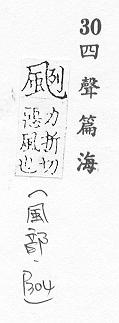 30四聲篇海
颲
力折切
惡風也
(風部.B04)